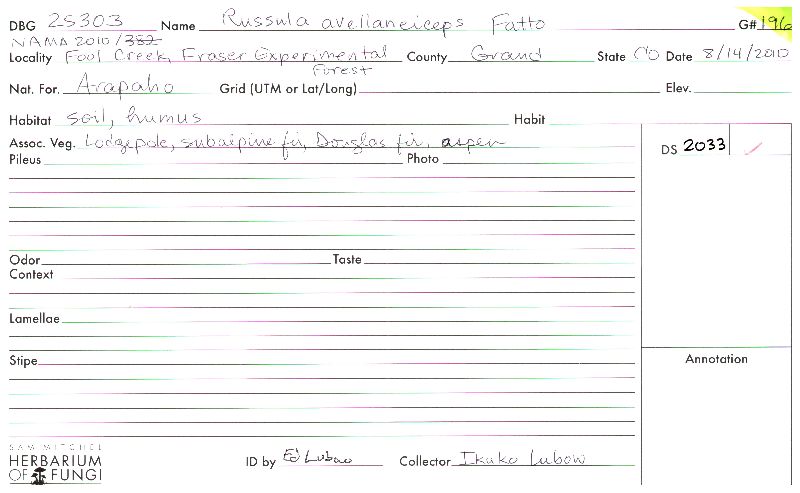 DBG 25303 Name Russula avellaneiceps Fatto G# 196
NAMA 2010/382
Locality Fool Creek, Fraser Experimental Forest County Grand State CO Date 8/14/2010
Nat. For. Arapaho Grid (UTM or Lat/Long) Elev.
Habitat soil, humus Habit
Assoc. Veg. Lodgepole, subalpine fir, Douglas fir, aspen DS 2033
Pileus Photo
Odor Taste
Context
Lamellae
Stipe Annotation
SAM MITCHEL
HERBARIUM
OF FUNGI
ID by Ed Lubow Collector Ikuko Lubow